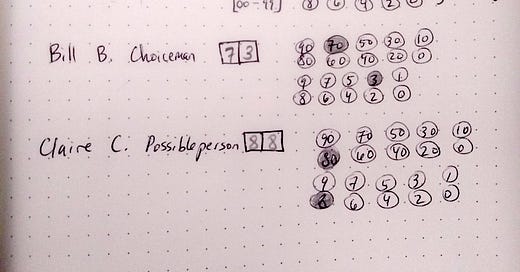 [00-99] 8 6 4 2 0
90 70 50 30 10
Bill B. Choiceman 73 80 60 40 20 0
9 7 5 3 1
8 6 4 2 0
90 70 50 30 10
Claire C. Possibleperson 88 80 60 40 20 0
9 7 5 3 1
8 6 4 2 0